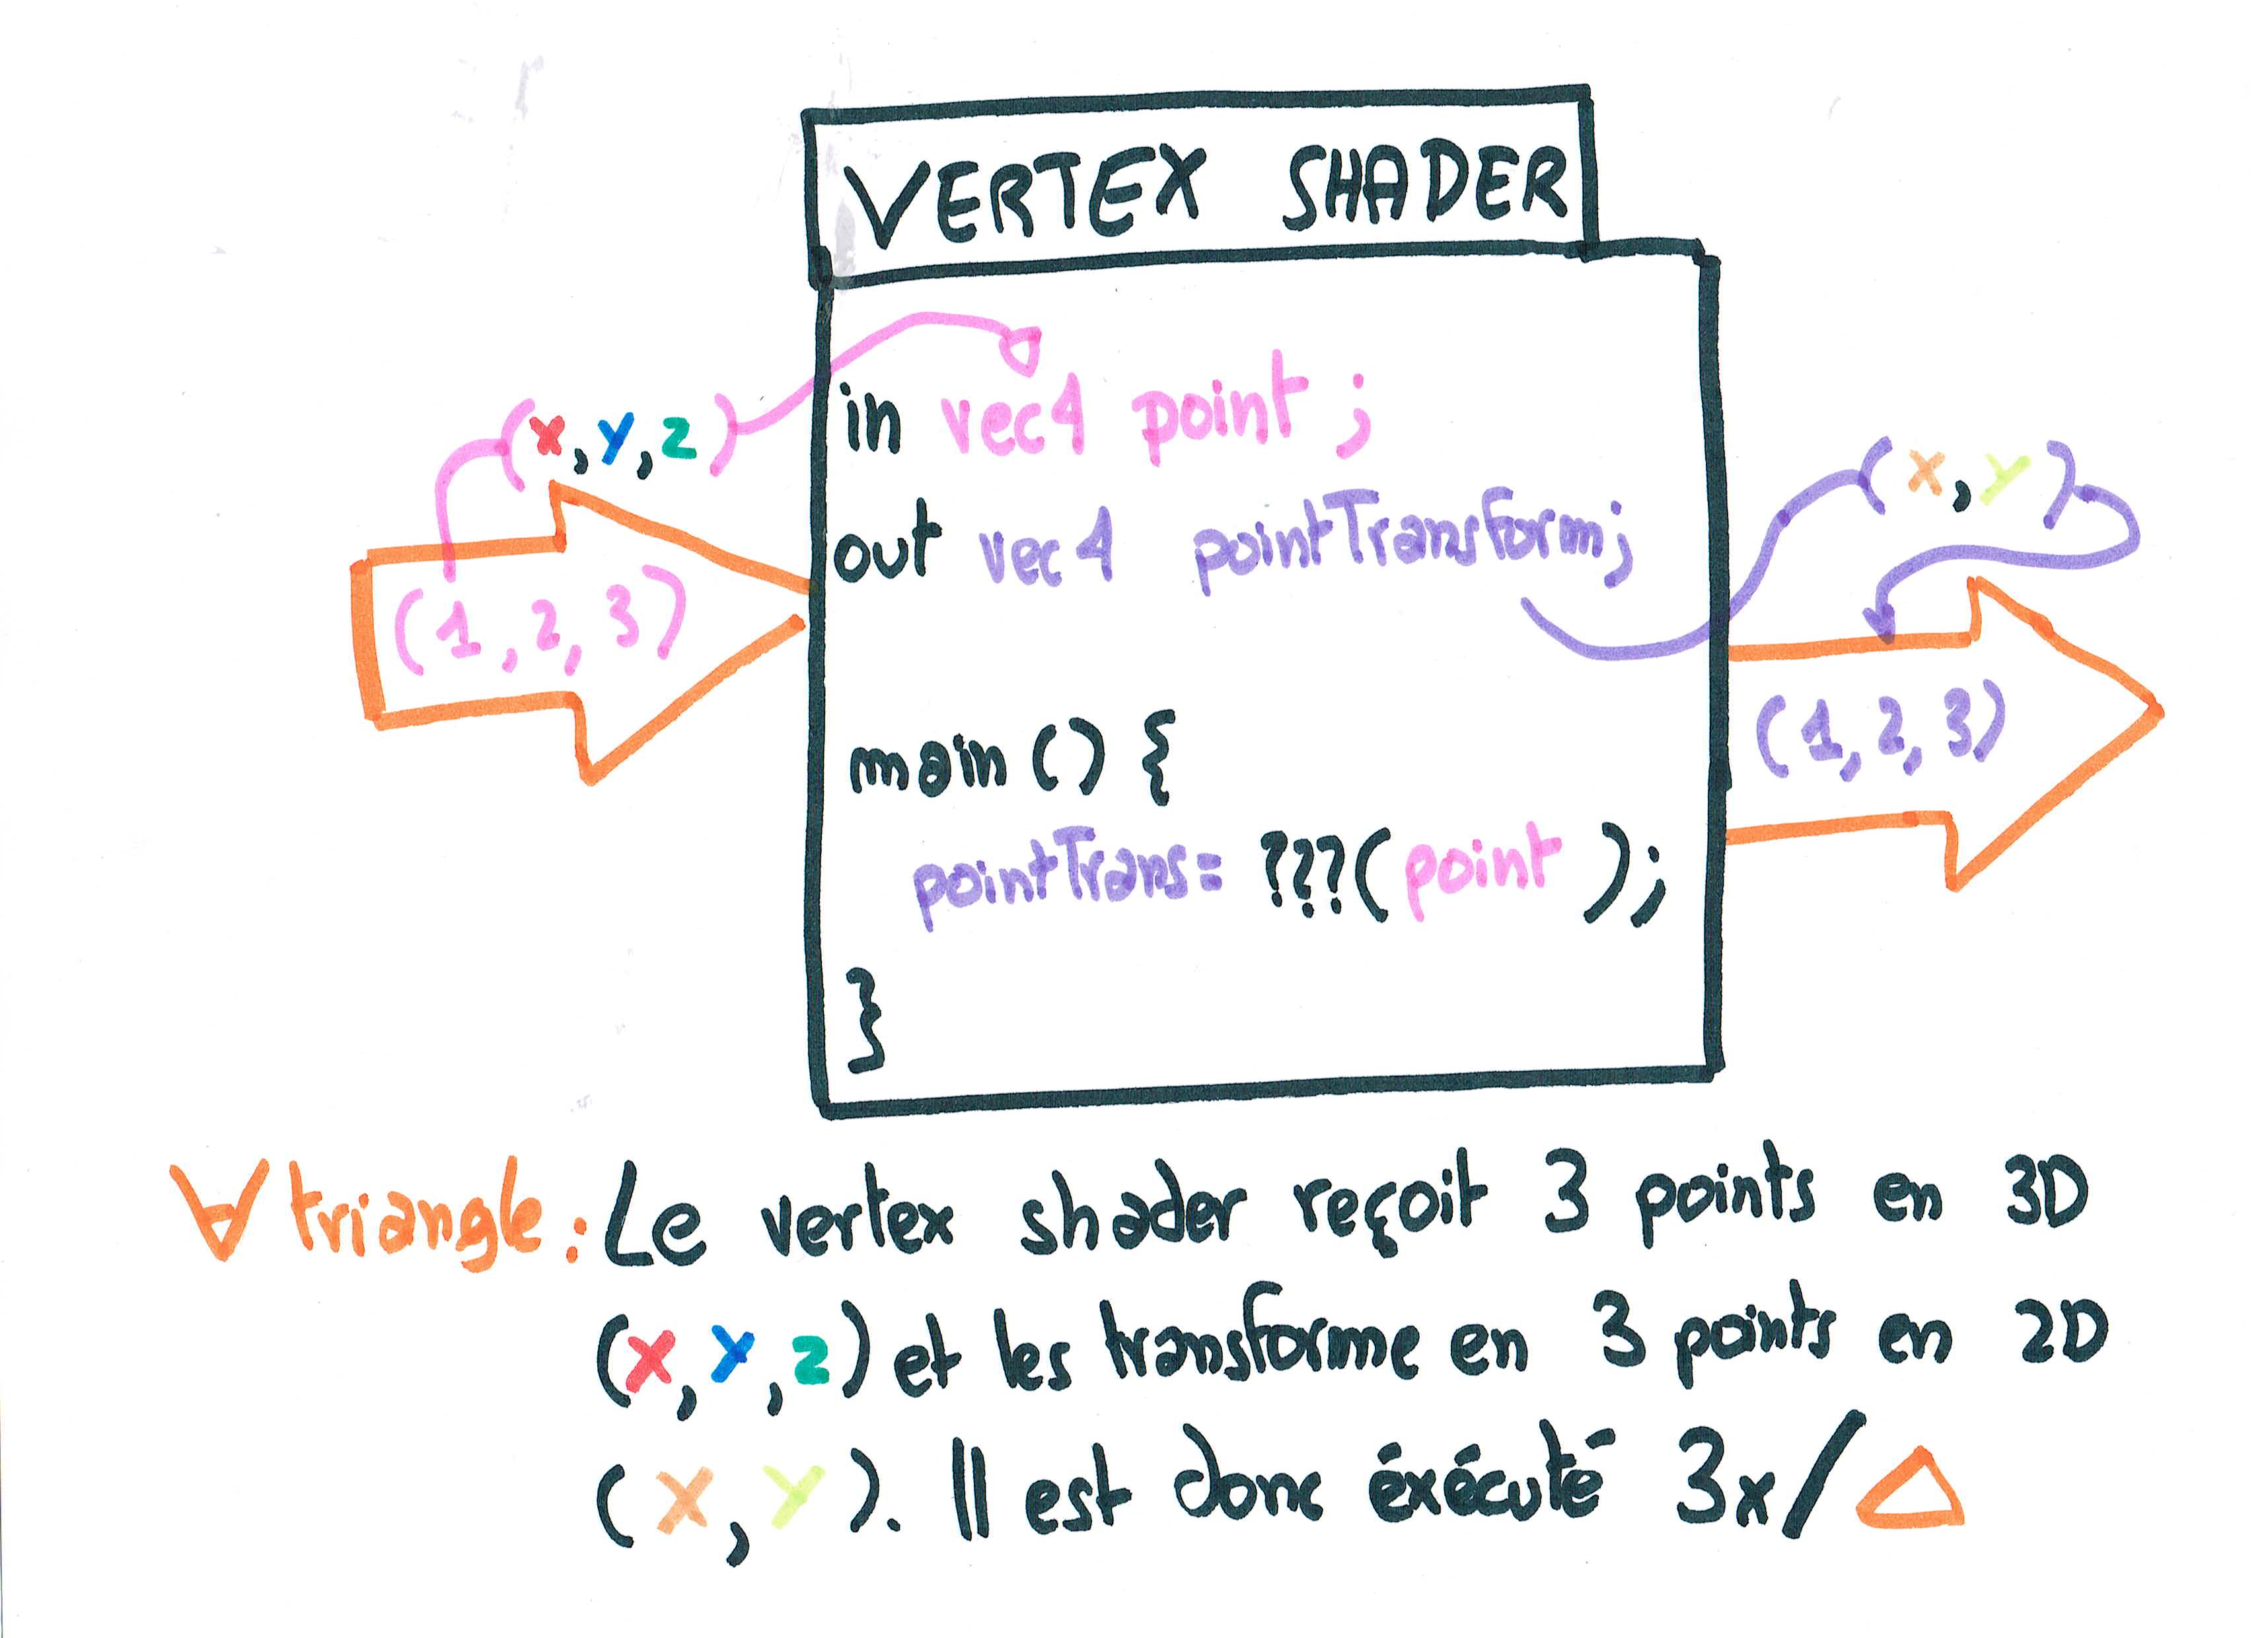 VERTEX SHADER
(x,y,z)
in vec4 point ;
(x,y)
out vec4 pointTransform;
(1,2,3)
(1,2,3)
main () {
pointTrans= ???(point );
}
∀ triangle: Le vertex shader reçoit 3 points en 3D
(x,y,z) et les transforme en 3 points en 2D
(x,y). Il est donc éxécuté 3x/△